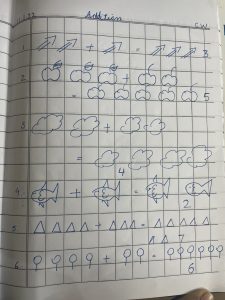 Addition C.W
1. + = 3
2. +
= 5
3. +
= 4
4. + = 2
5. + = 7
6. + = 6